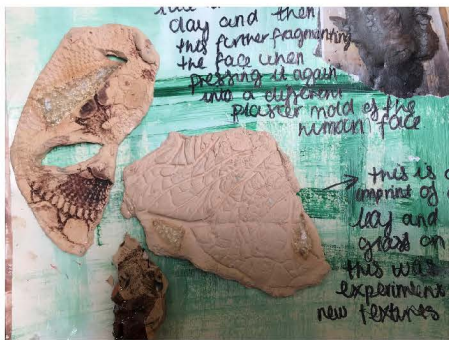 clay and then
this further fragmenting
the face when
pressing it again
into a different
plaster mold of the
human face
this is
imprint of
and
grass on
this was
experiment
new textures